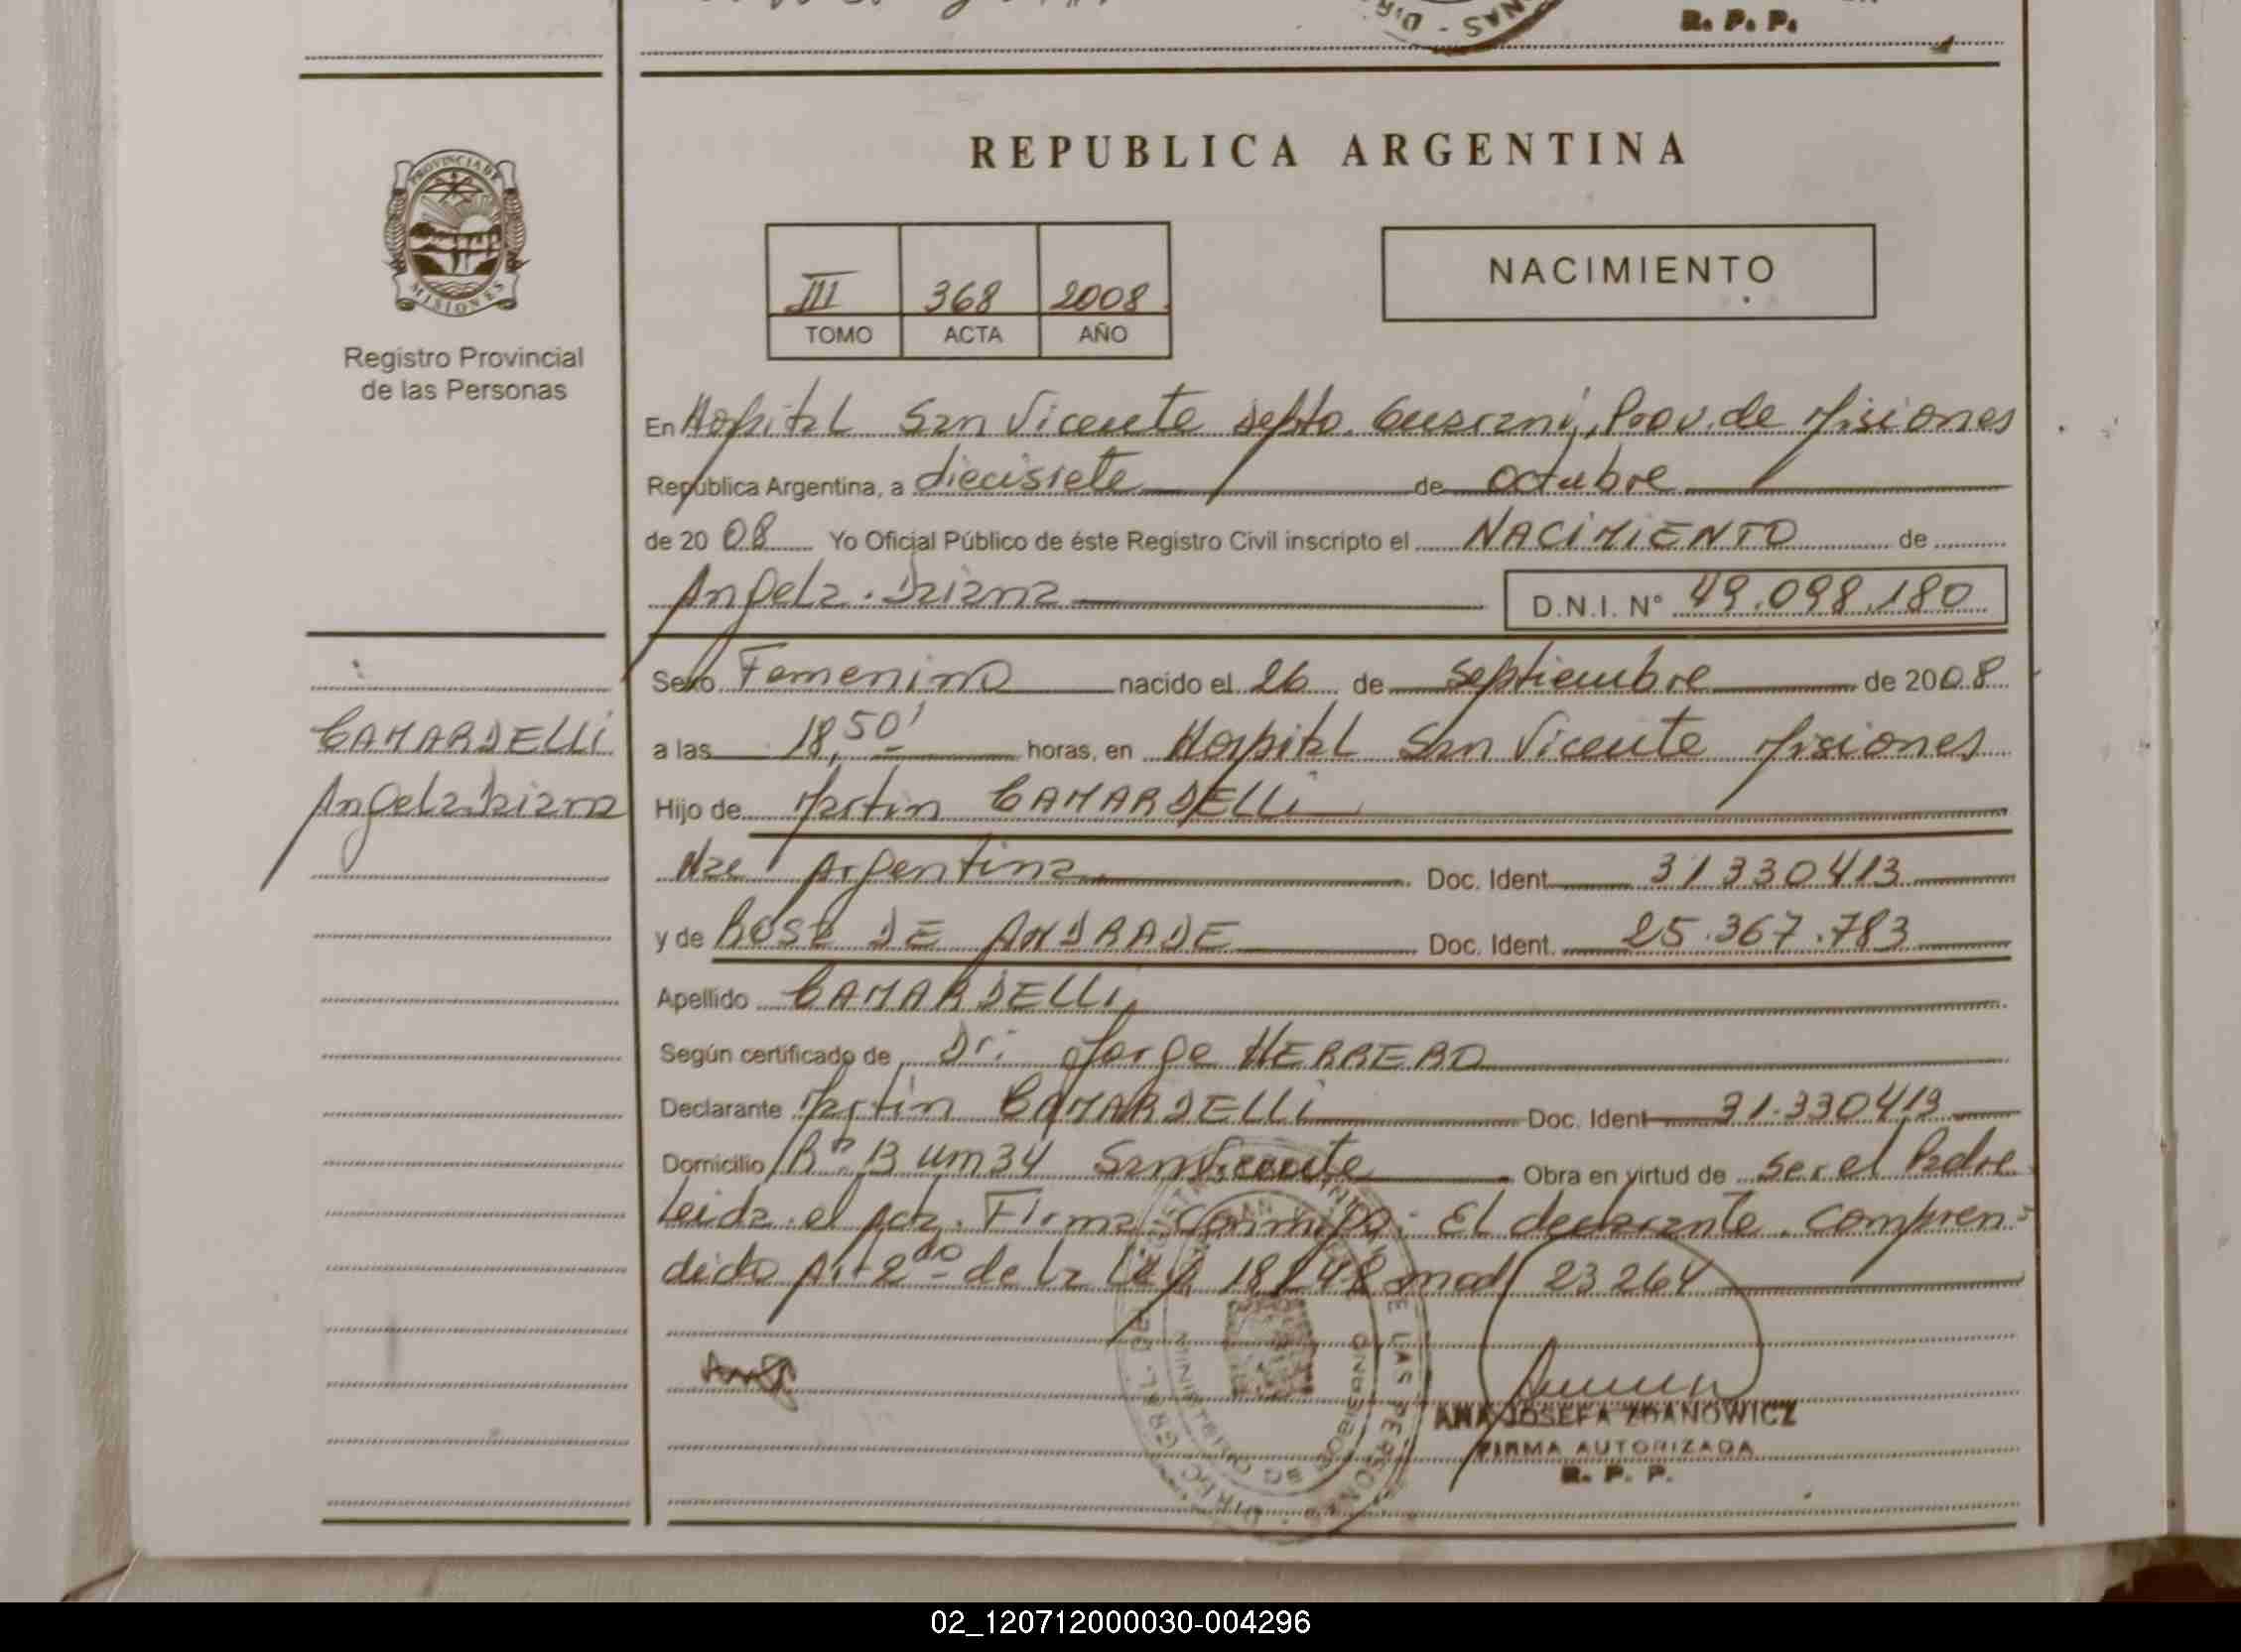 R. P. P.
PROVINCIA DE
MISIONES
Registro Provincial
de las Personas
REPUBLICA ARGENTINA
III 368 2008
TOMO ACTA AÑO
NACIMIENTO
En Hospital San Vicente depto. Guaraní, Prov. de Misiones
República Argentina, a diecisiete de octubre
de 2008 Yo Oficial Público de éste Registro Civil inscripto el NACIMIENTO de
Angela Daiana D.N.I. N° 49.098.180
Sexo Femenino nacido el 26 de septiembre de 2008
a las 18,50' horas, en Hospital San Vicente Misiones
Hijo de Martin CAMARDELLi
Nac Argentina Doc. Ident 31330413
y de Rosa DE ANDRADE Doc. Ident. 25.367.783
Apellido CAMARDELLi
Según certificado de Dr. Jorge HERRERO
Declarante Martin CAMARDELLi Doc. Ident 31.330413
Domicilio Bº 13 um 34 San Vicente Obra en virtud de ser el Padre
Leida el acta. Firma conmigo: El declarante. Compren-
dido Art 2do de la Ley 18248 mod 23264
ANA JOSEFA ZDANOWICZ
FIRMA AUTORIZADA
R. P. P.
CAMARDELLi
Angela Daiana
02_120712000030-004296